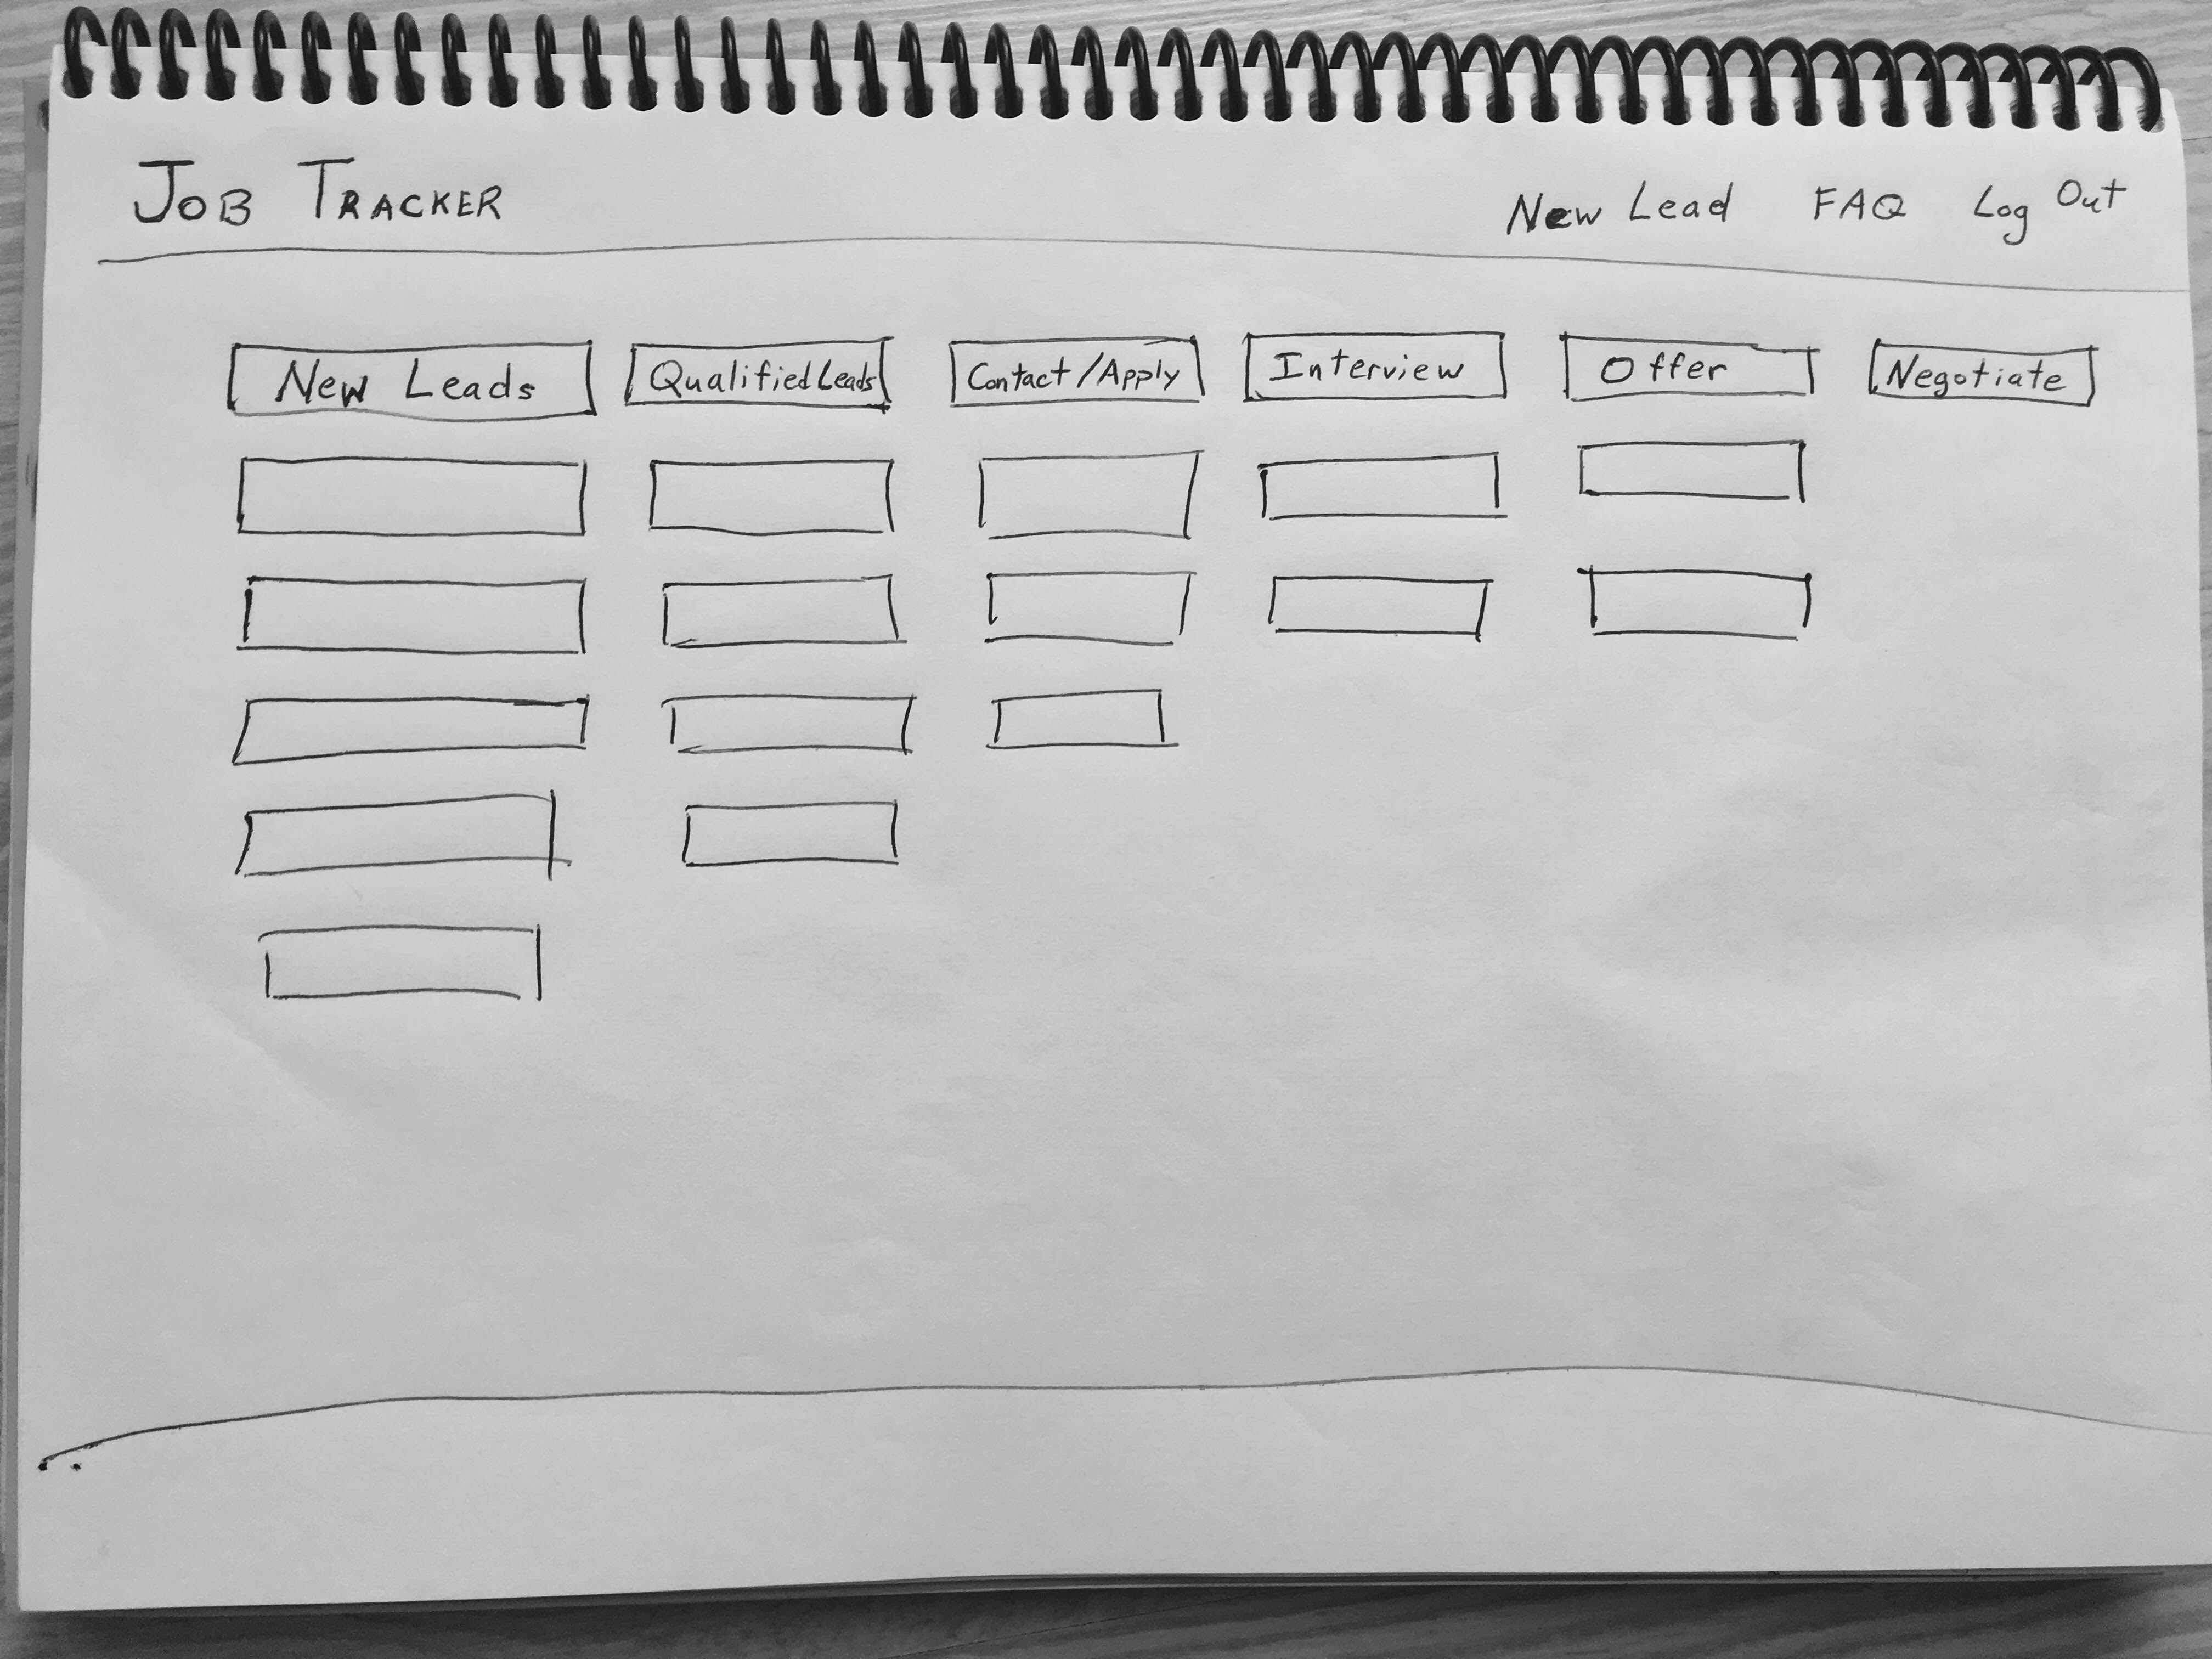 JOB TRACKER
New Lead FAQ Log Out
New Leads
Qualified Leads
Contact/Apply
Interview
Offer
Negotiate